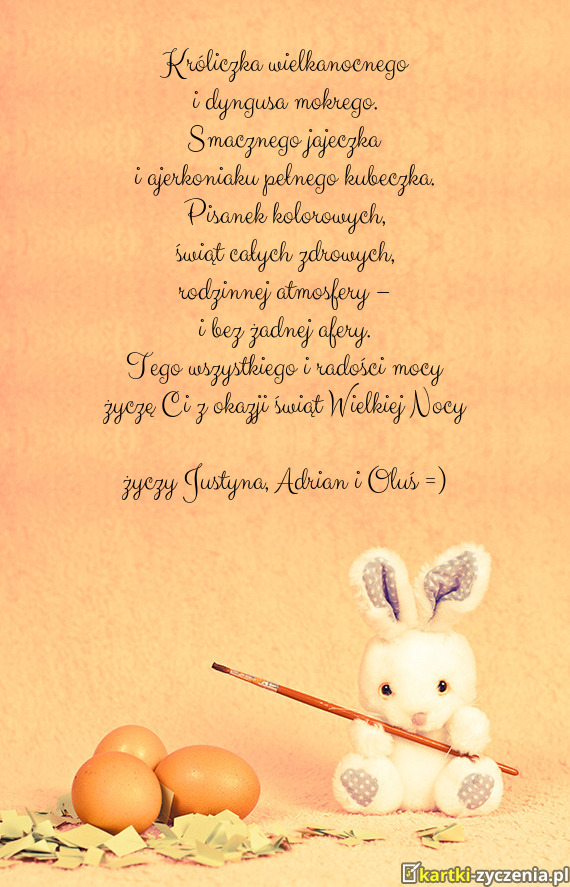 Króliczka wielkanocnego
i dyngusa mokrego.
Smacznego jajeczka
i ajerkoniaku pełnego kubeczka.
Pisanek kolorowych,
świąt całych zdrowych,
rodzinnej atmosfery –
i bez żadnej afery.
Tego wszystkiego i radości mocy
życzę Ci z okazji świąt Wielkiej Nocy
życzy Justyna, Adrian i Oluś =)
kartki-zyczenia.pl